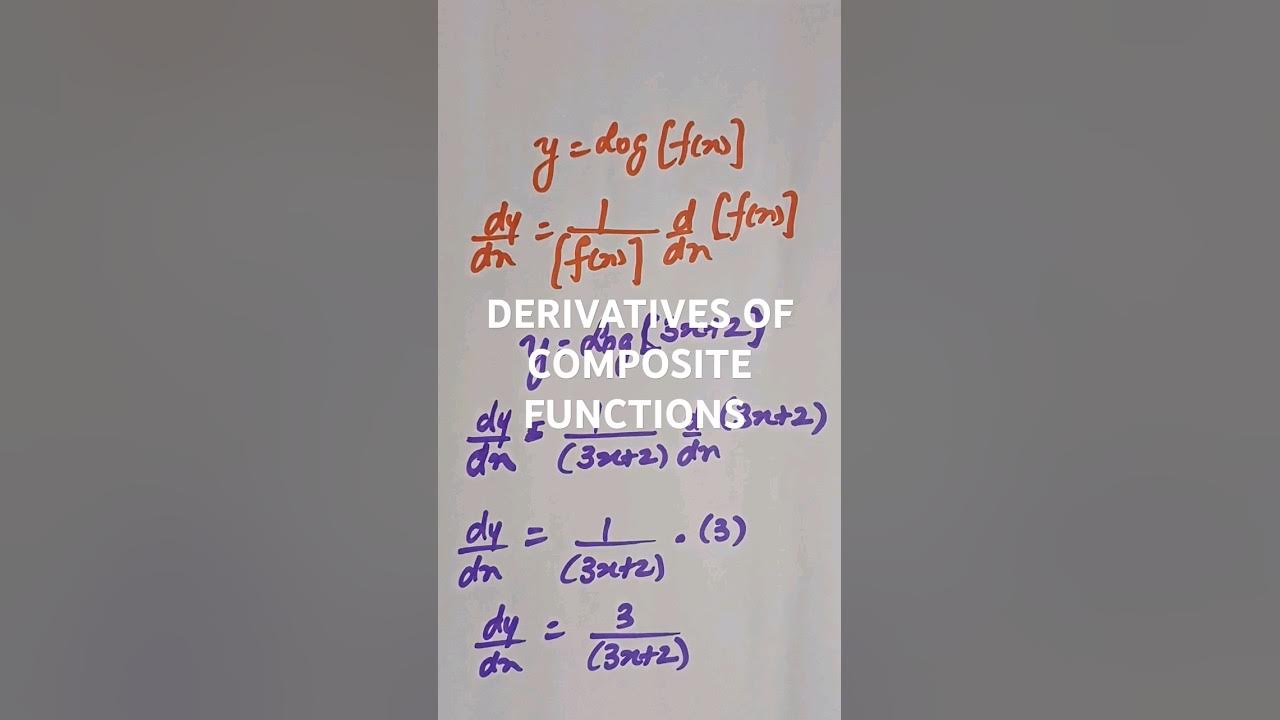 y = log [f(x)]
dy/dx = 1/[f(x)] d/dx [f(x)]
DERIVATIVES OF
y = log [3x+2]
COMPOSITE
FUNCTIONS
dy/dx = 1/(3x+2) d/dx (3x+2)
dy/dx = 1/(3x+2) . (3)
dy/dx = 3/(3x+2)